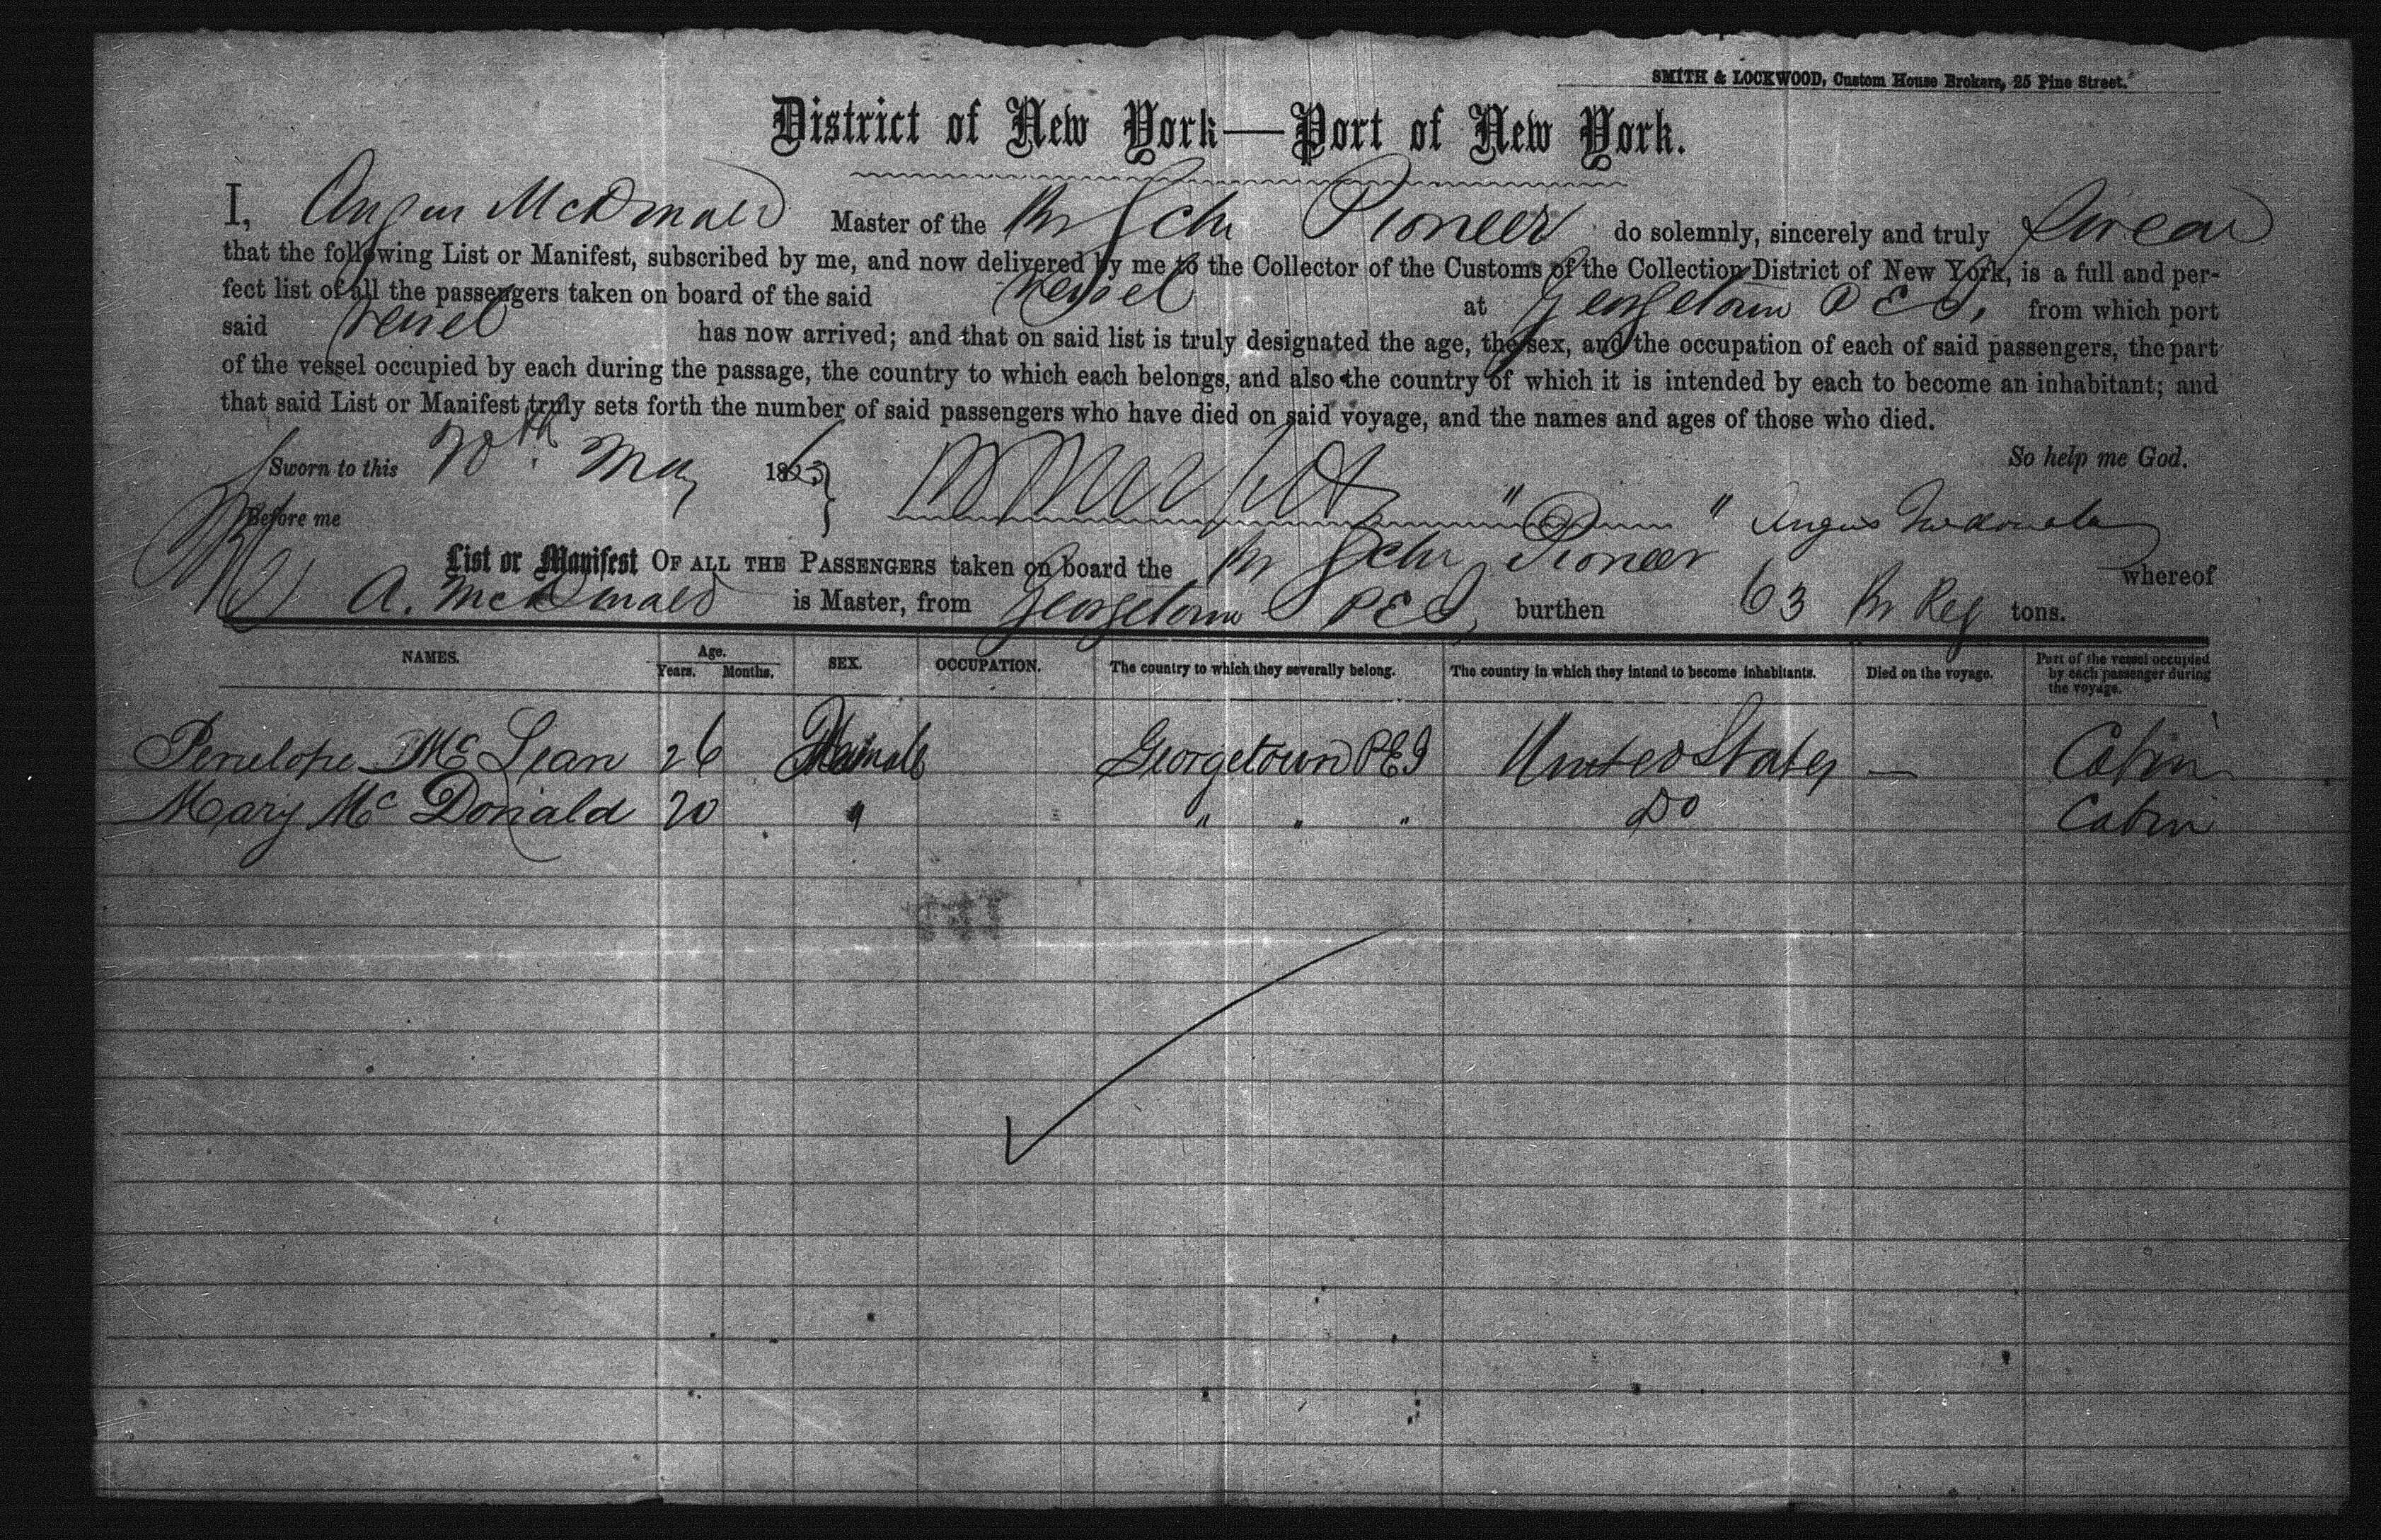 SMITH & LOCKWOOD, Custom House Brokers, 25 Pine Street.
District of New York—Port of New York.
I, Angus McDonald Master of the Br Schr Pioneer do solemnly, sincerely and truly swear
that the following List or Manifest, subscribed by me, and now delivered by me to the Collector of the Customs of the Collection District of New York, is a full and per-
fect list of all the passengers taken on board of the said vessel at Georgetown P E I, from which port
said vessel has now arrived; and that on said list is truly designated the age, the sex, and the occupation of each of said passengers, the part
of the vessel occupied by each during the passage, the country to which each belongs, and also the country of which it is intended by each to become an inhabitant; and
that said List or Manifest truly sets forth the number of said passengers who have died on said voyage, and the names and ages of those who died.
So help me God.
Sworn to this May 186
Before me Angus McDonald
List or Manifest OF ALL THE PASSENGERS taken on board the Br Schr "Pioneer" whereof
A. McDonald is Master, from Georgetown P E I, burthen 63 Br Reg tons.
NAMES. Age. Years. Months. SEX. OCCUPATION. The country to which they severally belong. The country in which they intend to become inhabitants. Died on the voyage. Part of the vessel occupied by each passenger during the voyage.
Penelope Mc Lean 26 Female Georgetown P E I United States — Cabin
Mary Mc Donald 20 " " " " Do Cabin